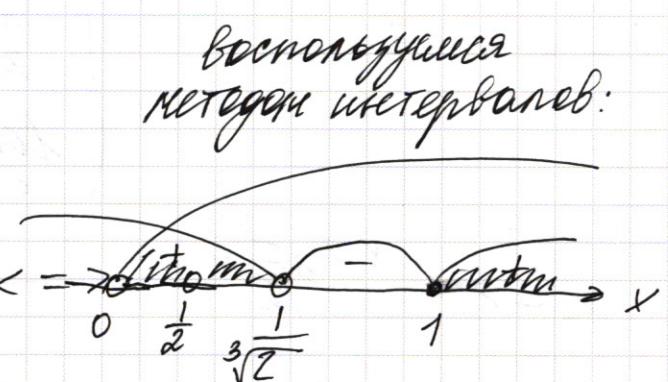 воспользуемся
методом интервалов:
<=> + − + x
0 1/2 1/∛2 1